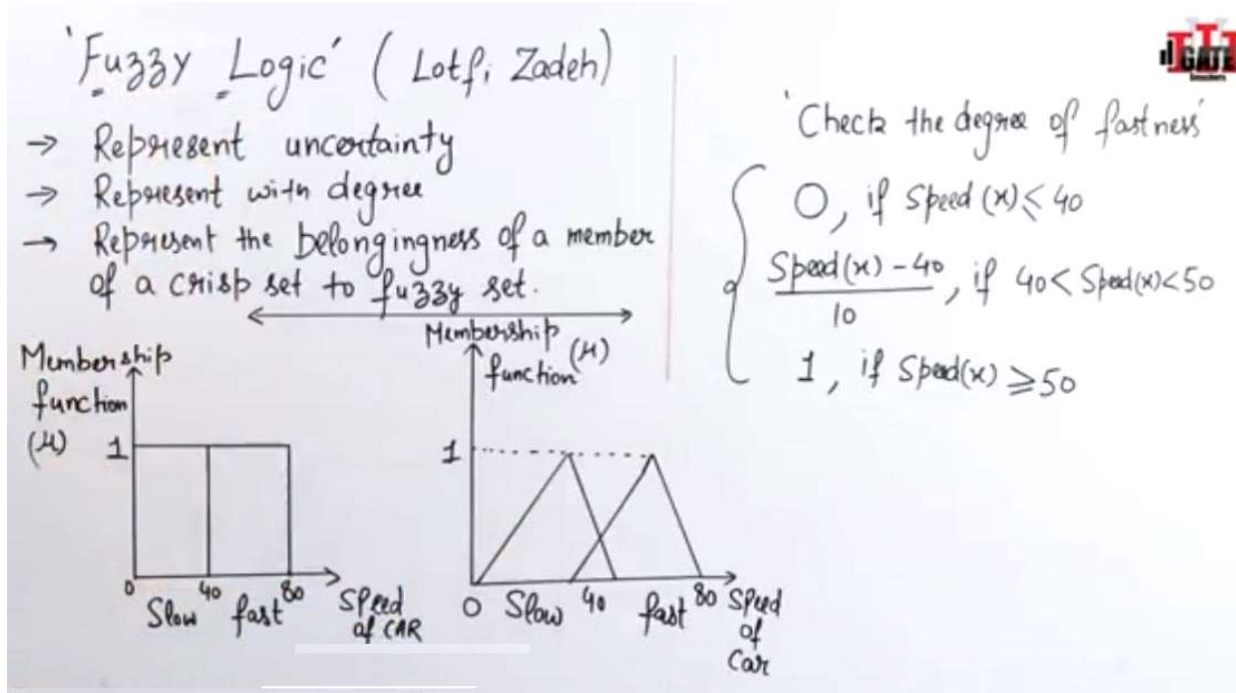 'Fuzzy Logic' ( Lotfi Zadeh)
→ Represent uncertainty
→ Represent with degree
→ Represent the belongingness of a member
of a crisp set to fuzzy set.
Membership
function
(μ)
1
0
40
80
Slow fast
Speed
of CAR
Membership
function (μ)
1
0 Slow 40 fast 80 Speed
of
Car
GATE
Smashers
'Check the degree of fastness'
0, if Speed (x) ≤ 40
Speed(x) - 40
10
, if 40 < Speed(x) < 50
1, if Speed(x) ≥ 50